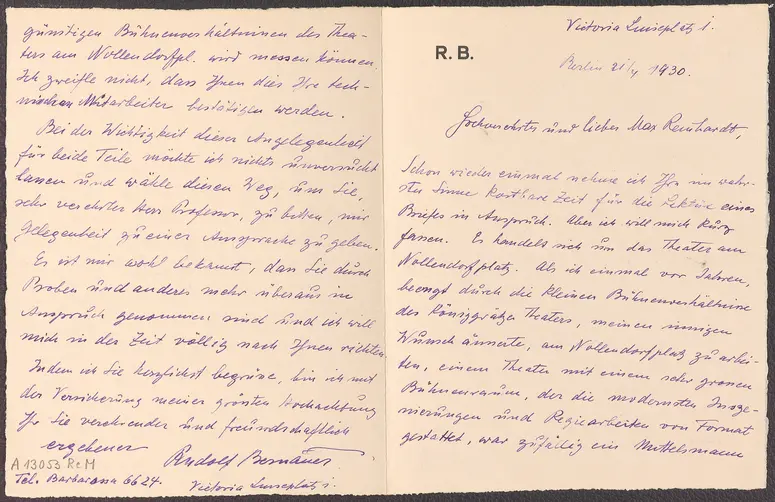 günstigen Bühnenverhältnissen des Thea-
ters am Nollendorfpl. wird messen können.
Ich zweifle nicht, dass Ihnen dies Ihre tech-
nischen Mitarbeiter bestätigen werden.
Bei der Wichtigkeit dieser Angelegenheit
für beide Teile möchte ich nichts unversucht
lassen und wähle diesen Weg, um Sie,
sehr verehrter Herr Professor, zu bitten, mir
Gelegenheit zu einer Aussprache zu geben.
Es ist mir wohl bekannt, dass Sie durch
Proben und anderes mehr überaus in
Anspruch genommen sind und ich will
mich in der Zeit völlig nach Ihnen richten.
Indem ich Sie herzlichst begrüsse, bin ich mit
der Versicherung meiner grössten Hochachtung
Ihr Sie verehrender und freundschaftlich
ergebener
Rudolf Bernauer
A 13053 ReM
Tel. Barbarossa 6624.
Victoria Luiseplatz 1.
Victoria Luiseplatz 1.
R. B.
Berlin 1930.
Hochverehrter und lieber Max Reinhardt,
Schon wieder einmal nehme ich Ihre im wahr-
sten Sinne kostbare Zeit für die Lektüre eines
Briefes in Anspruch. Aber ich will mich kurz
fassen. Es handelt sich um das Theater am
Nollendorfplatz. Als ich einmal vor Jahren,
beengt durch die kleinen Bühnenverhältnisse
des Königgrätzer Theaters, meinen innigen
Wunsch äusserte, am Nollendorfplatz zu arbei-
ten, einem Theater mit einem sehr grossen
Bühnenraum, der die modernsten Insze-
nierungen und Regiearbeiten von Format
gestattet, war zufällig ein Mittelsmann